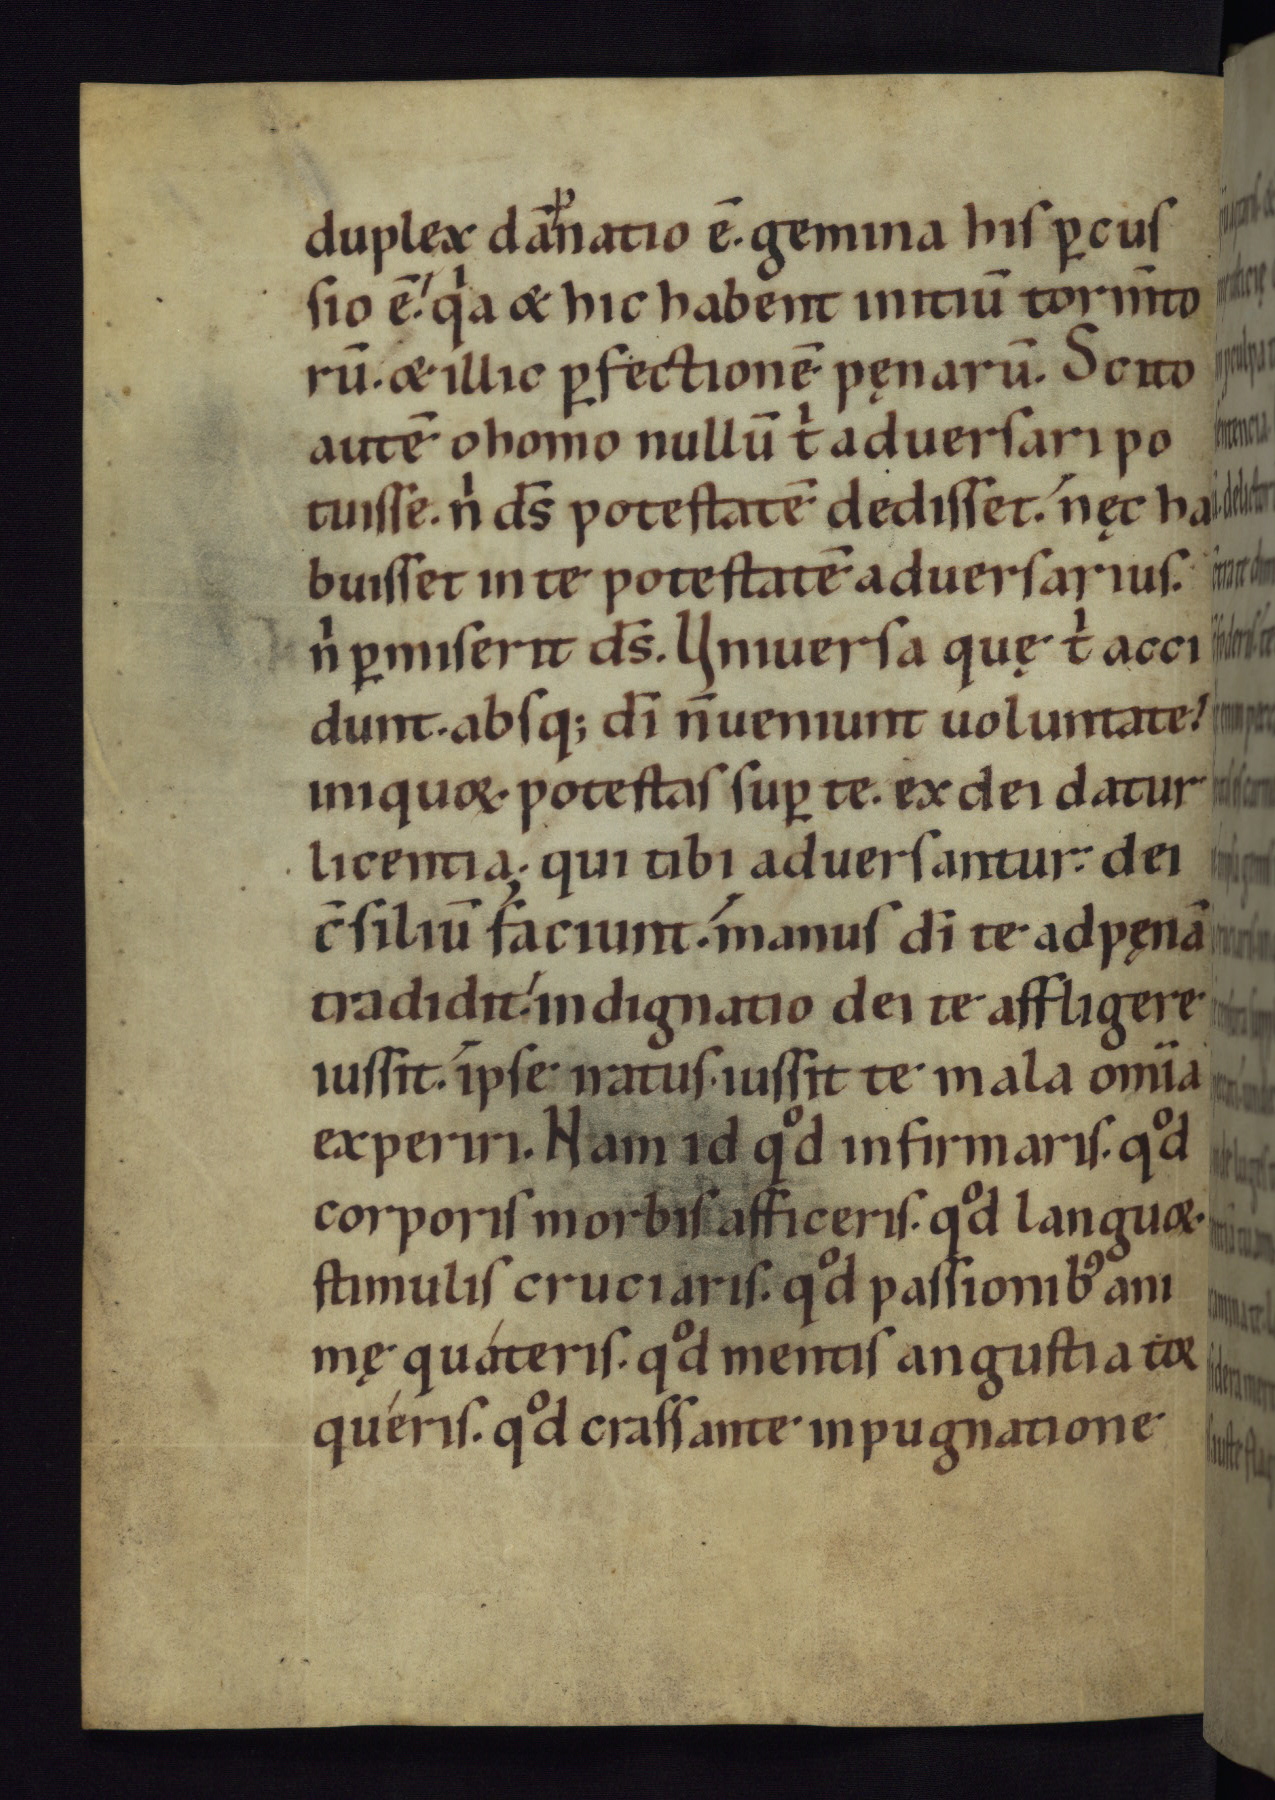 duplex dāᵖnatio ē. gemina his ꝑcus
sio ē. qͥa & hic habent initiū tormīto
rū. & illic ꝑfectionē pęnarū. Scito
autē o homo nullū tͥ aduersari po
tuisse. nͥ ds̄ potestatē dedisset. nęc ha
buisset in te potestatē aduersarius.
nͥ ꝑmiserit ds̄. Uniuersa quę tͥ acci
dunt. absq; dī n̄ ueniunt uoluntate.
iniquo&. potestas suꝑ te. ex dei datur
licentia. qui tibi aduersantur. dei
c̄siliū faciunt. manus dī te ad pęnā
tradidit. indignatio dei te affligere
iussit. ipse iratus. iussit te mala om̄ia
experiri. Nam id qͦd infirmaris. qͦd
corporis morbis afficeris. qͦd languo&
stimulis cruciaris. qͦd passionibꝰ ani
mę quáteris. qͦd mentis angustia to&
quéris. qͦd crassante inpugnatione